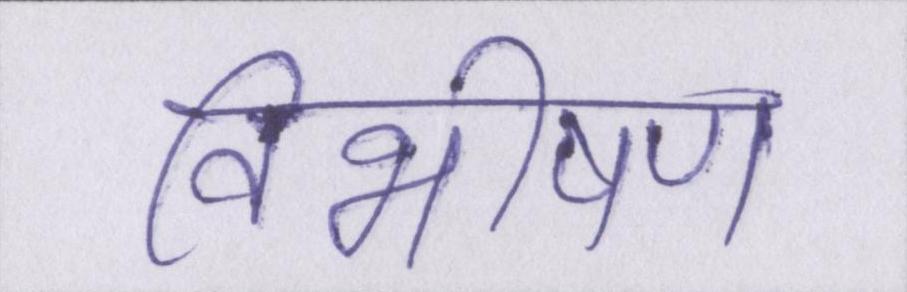 विभीषण